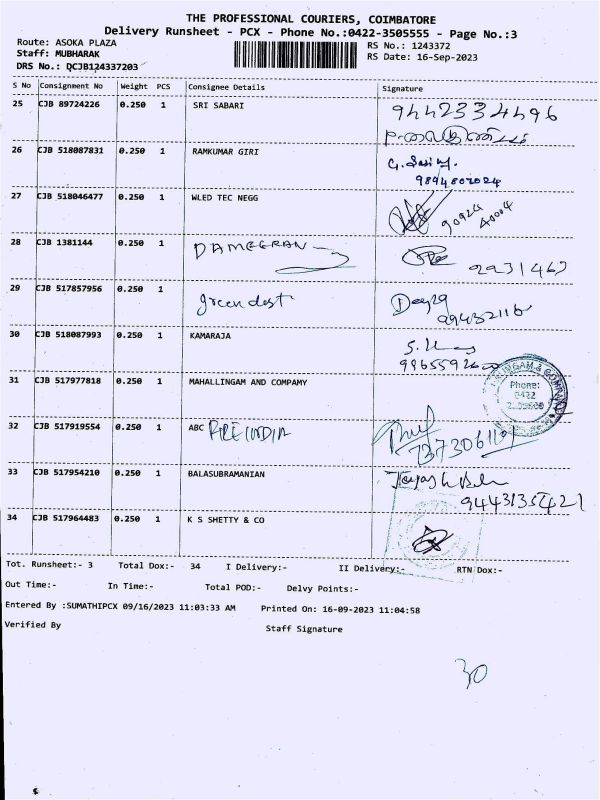 THE PROFESSIONAL COURIERS, COIMBATORE
Delivery Runsheet - PCX - Phone No.:0422-3505555 - Page No.:3
Route: ASOKA PLAZA
RS No.: 1243372
Staff: MUBHARAK
RS Date: 16-Sep-2023
DRS No.: DCJB124337203
S No Consignment No Weight PCS Consignee Details Signature
25 CJB 89724226 0.250 1 SRI SABARI 9442334496
26 CJB 518087831 0.250 1 RAMKUMAR GIRI
9894802024
27 CJB 518046477 0.250 1 WLED TEC NEGG
90924
40004
28 CJB 1381144 0.250 1 DAMEGRAN
9931467
29 CJB 517857956 0.250 1 greendest
30 CJB 518087993 0.250 1 KAMARAJA
31 CJB 517977818 0.250 1 MAHALLINGAM AND COMPAMY
Phone:
0422
32 CJB 517919554 0.250 1 ABC FIRE INDIA
33 CJB 517954210 0.250 1 BALASUBRAMANIAN
9443135421
34 CJB 517964483 0.250 1 K S SHETTY & CO
Tot. Runsheet:- 3 Total Dox:- 34 I Delivery:- II Delivery:- RTN Dox:-
Out Time:- In Time:- Total POD:- Delvy Points:-
Entered By :SUMATHIPCX 09/16/2023 11:03:33 AM Printed On: 16-09-2023 11:04:58
Verified By Staff Signature
30